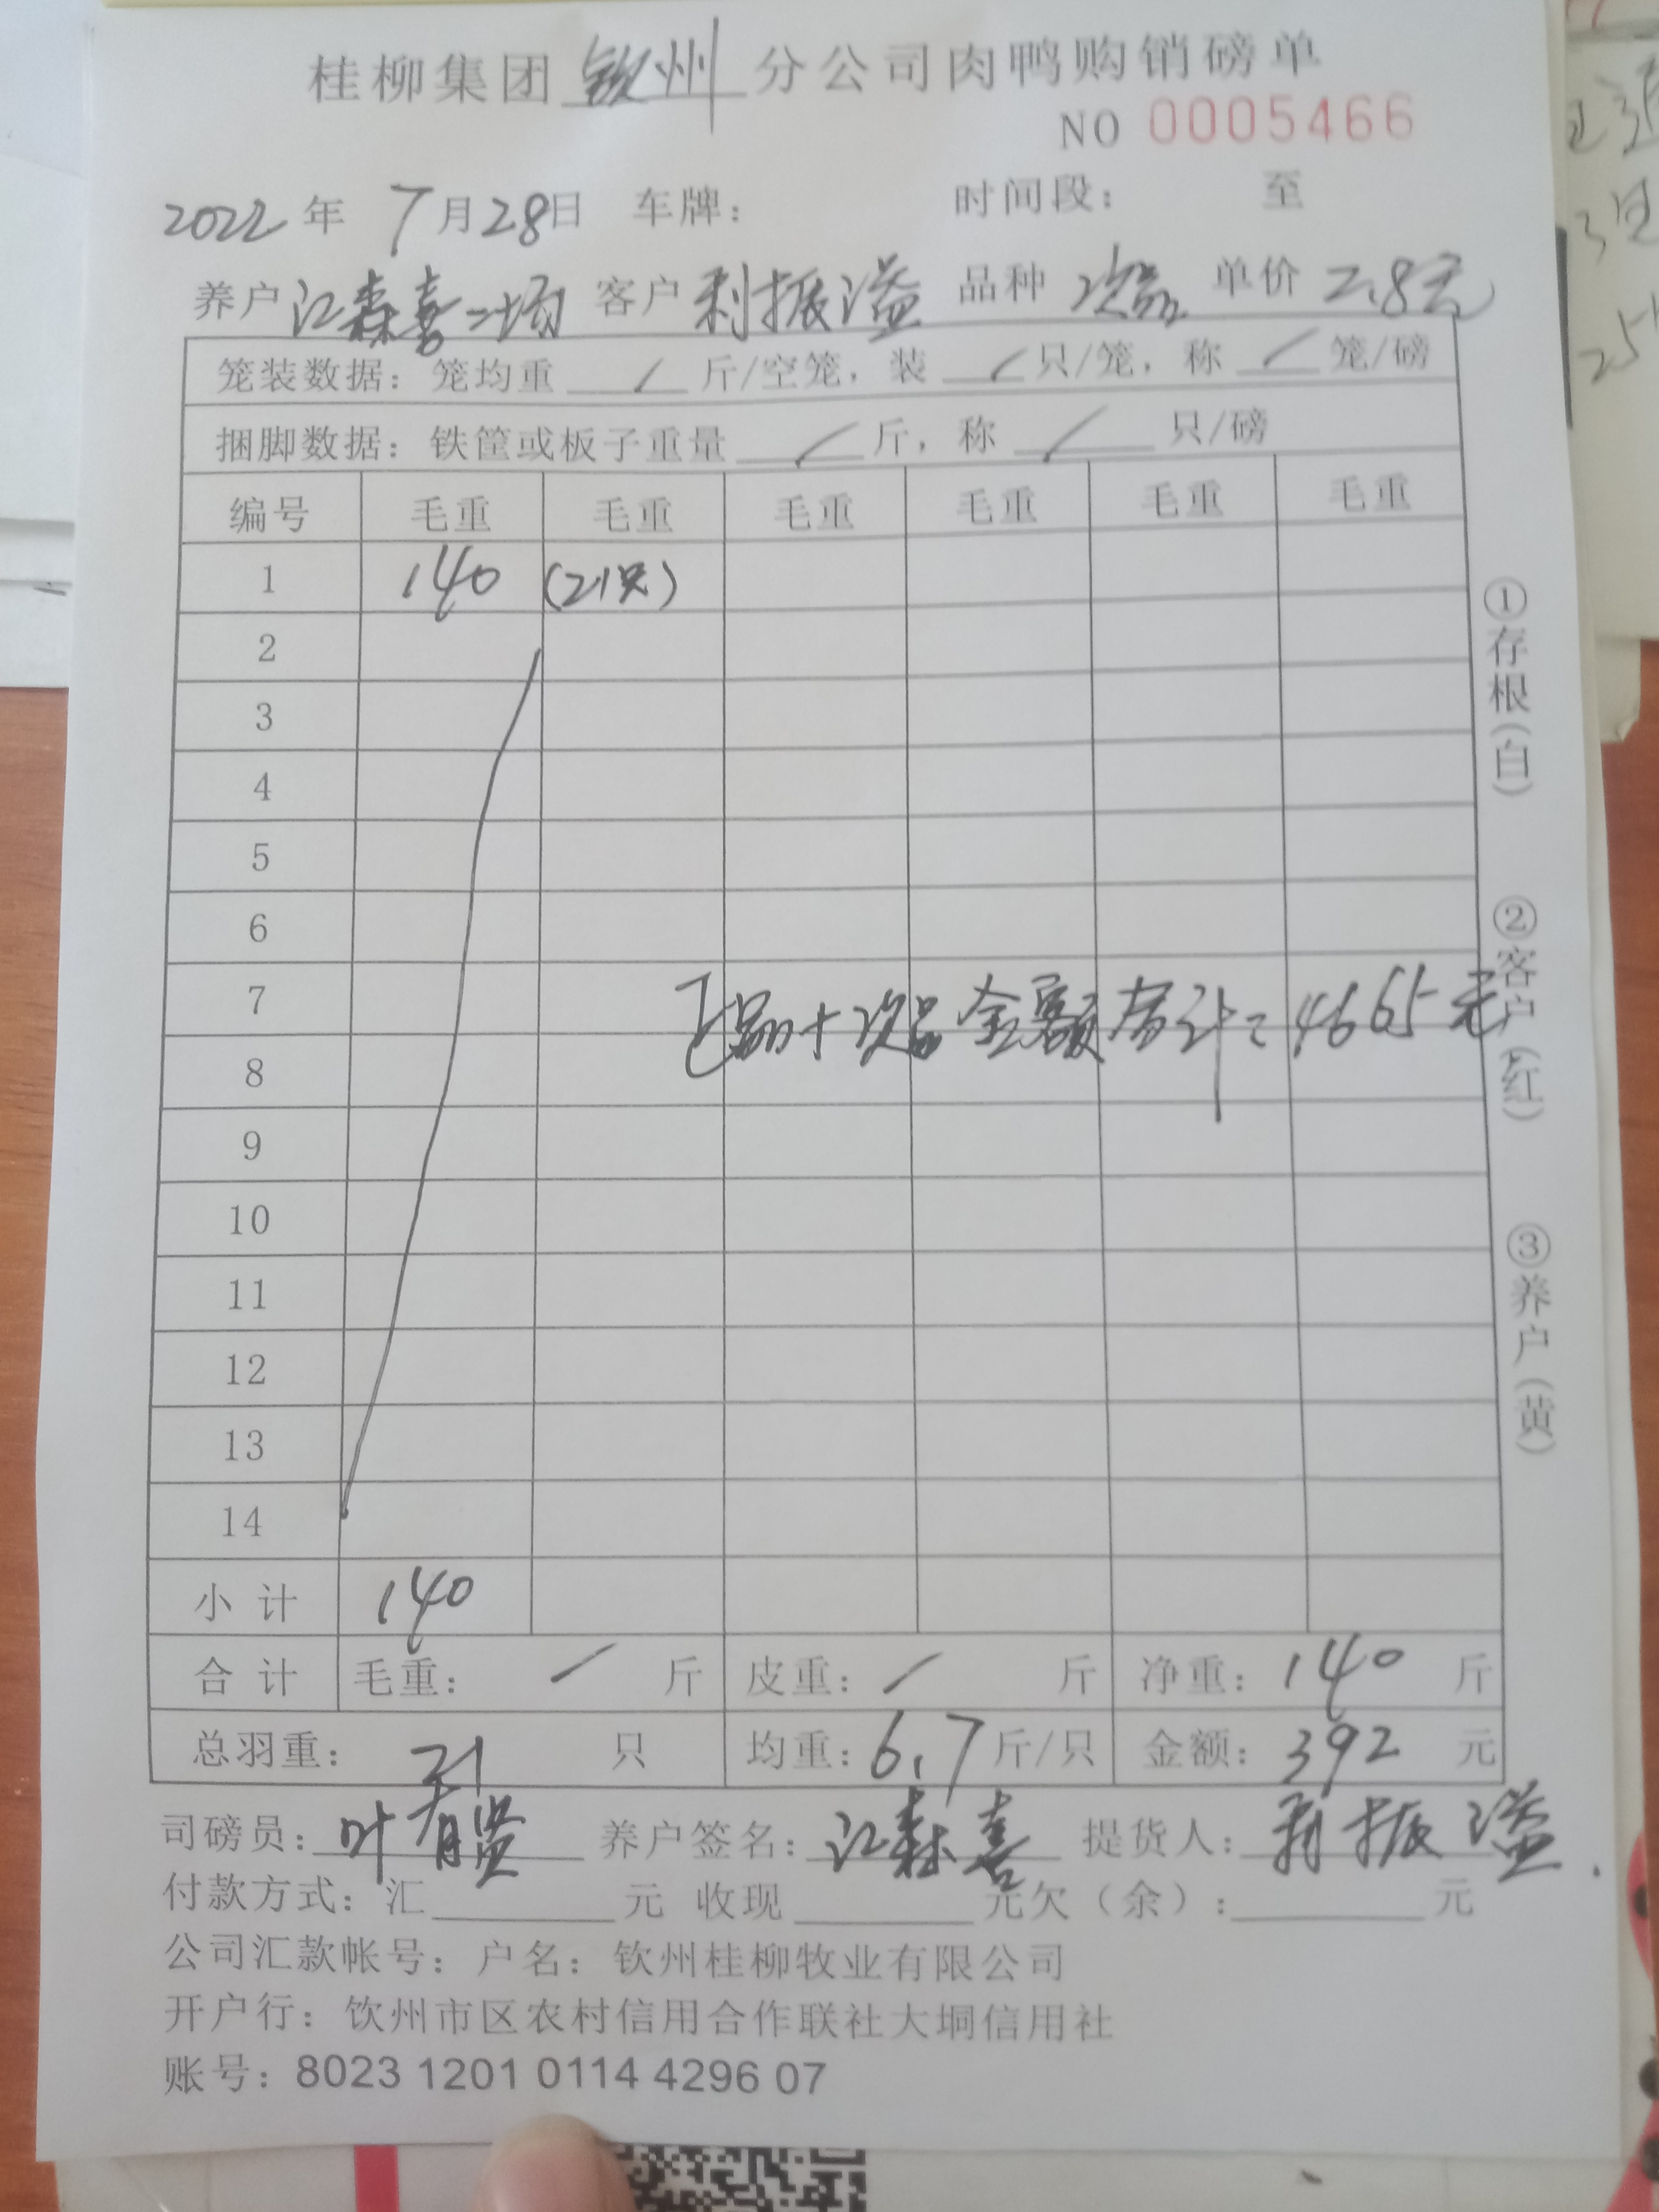 桂柳集团 钦州 分公司肉鸭购销磅单
NO 0005466
2022 年 7 月 28 日 车牌： 时间段： 至
养户 江森喜二场 客户 利振溢 品种 次品 单价 2.8元
笼装数据：笼均重 / 斤/空笼，装 / 只/笼，称 / 笼/磅
捆脚数据：铁筐或板子重量 / 斤，称 / 只/磅
编号 毛重 毛重 毛重 毛重 毛重 毛重
1 140 (21只)
2
3
4
5
6
7
正品+次品金额合计=4665元
8
9
10
11
12
13
14
小计 140
合计 毛重： / 斤 皮重： / 斤 净重：140 斤
总羽重： 21 只 均重：6.7 斤/只 金额：392 元
司磅员：叶有贤 养户签名：江森喜 提货人：利振溢
付款方式：汇 元 收现 元欠（余）： 元
公司汇款帐号：户名：钦州桂柳牧业有限公司
开户行：钦州市区农村信用合作联社大垌信用社
账号：8023 1201 0114 4296 07
①存根(白) ②客户(红) ③养户(黄)